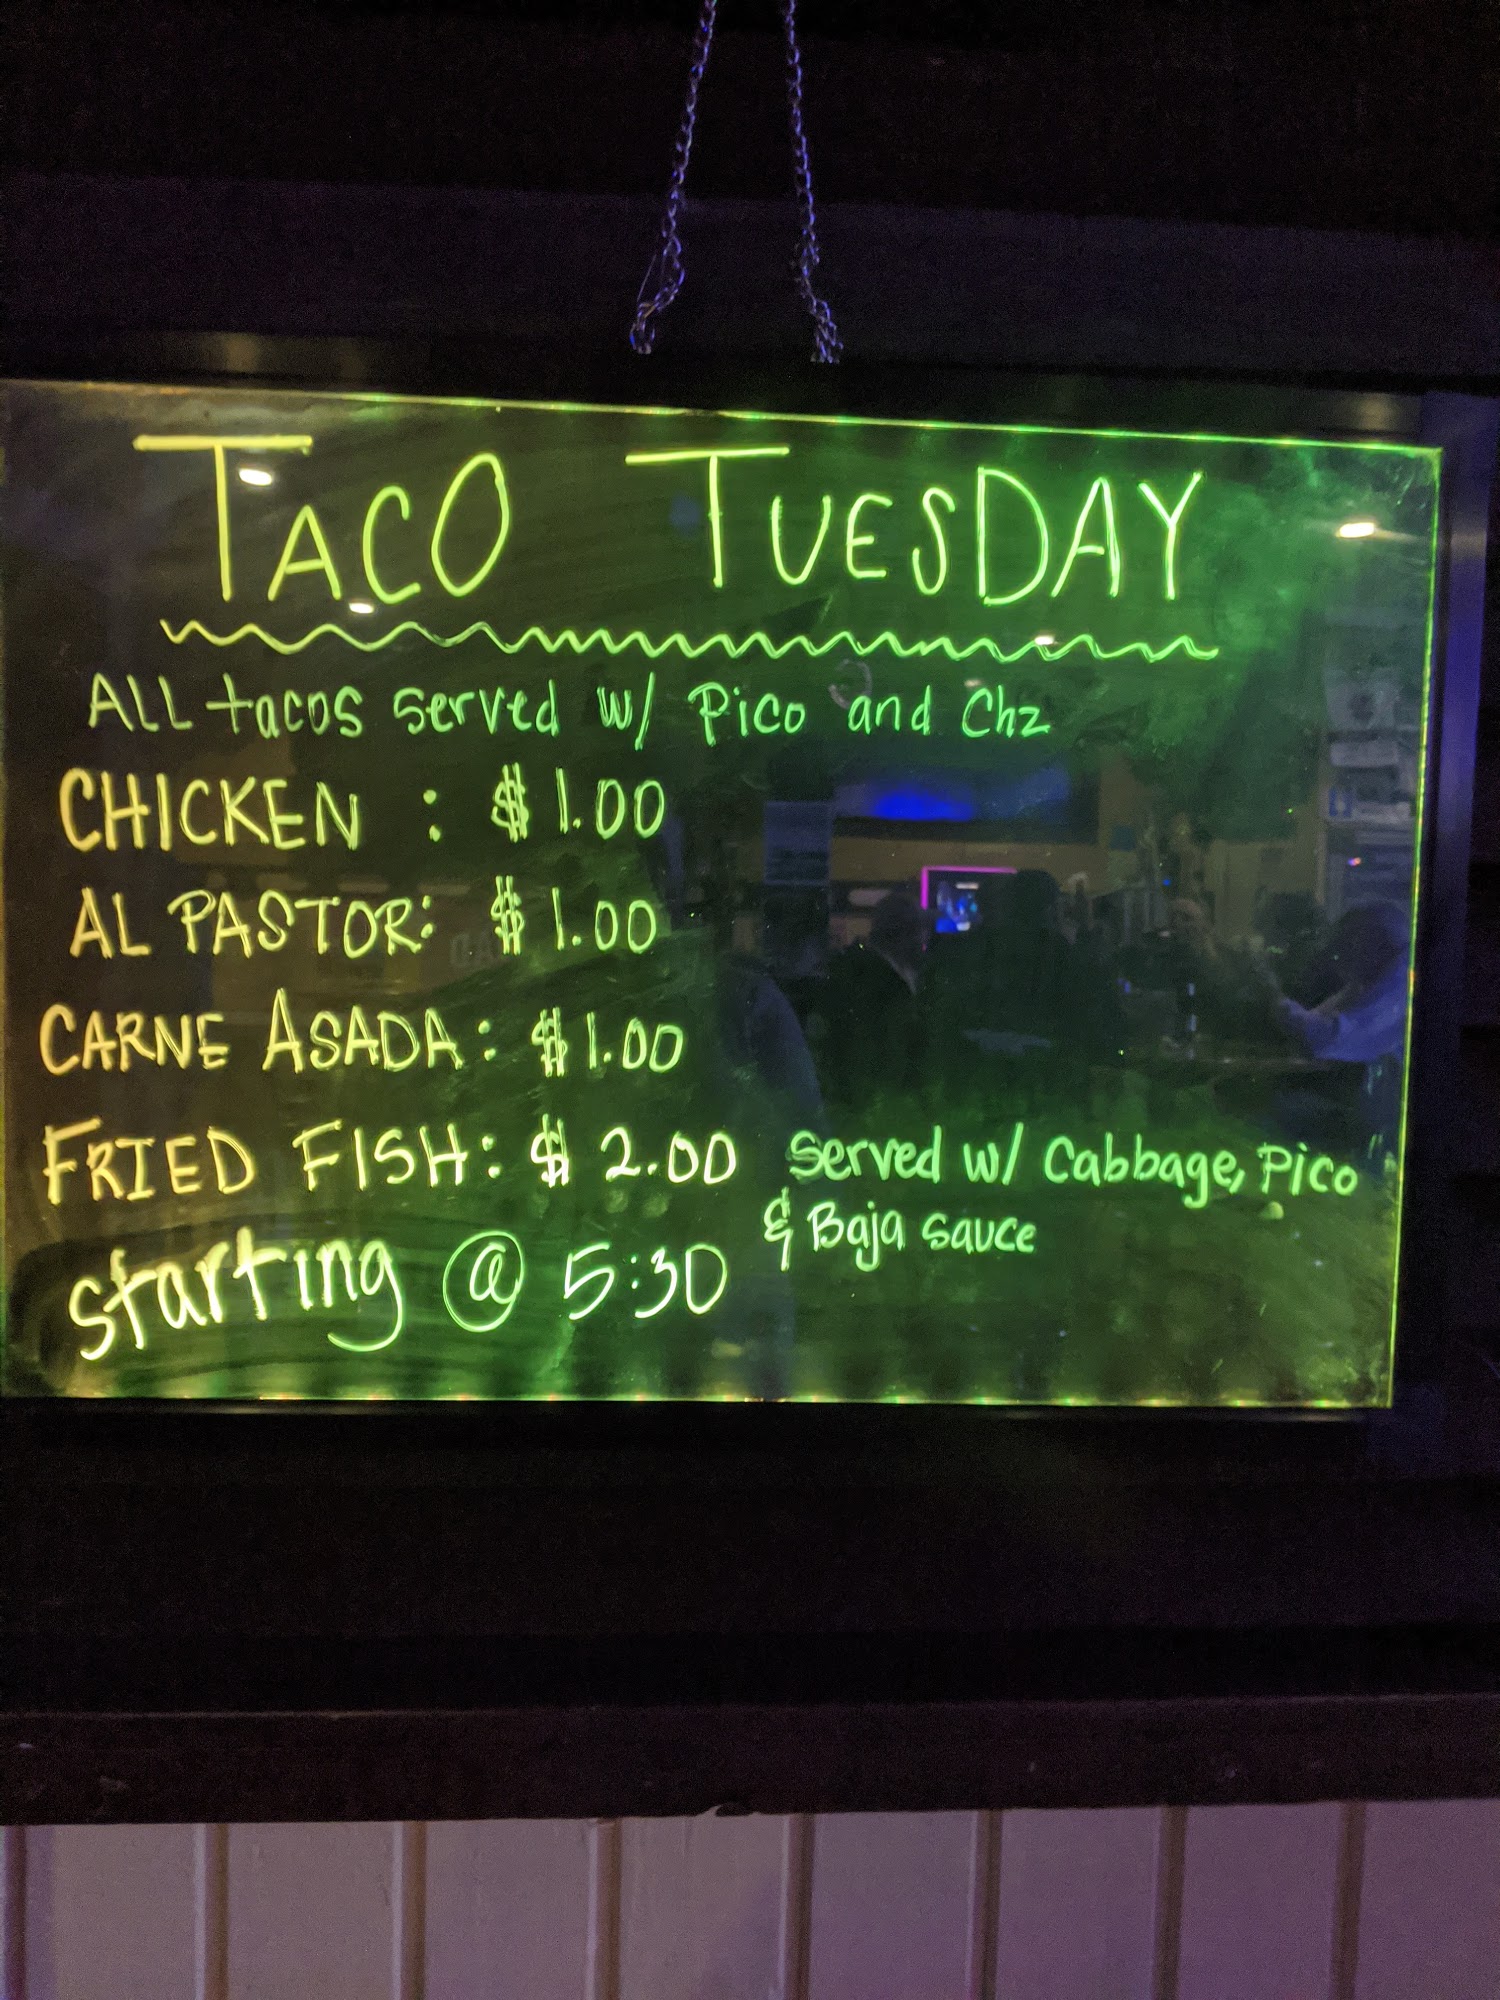 TACO TUESDAY
ALL tacos served w/ Pico and Chz
CHICKEN : $ 1.00
AL PASTOR: $ 1.00
CARNE ASADA: $1.00
FRIED FISH: $ 2.00 served w/ Cabbage, Pico
& Baja sauce
starting @ 5:30